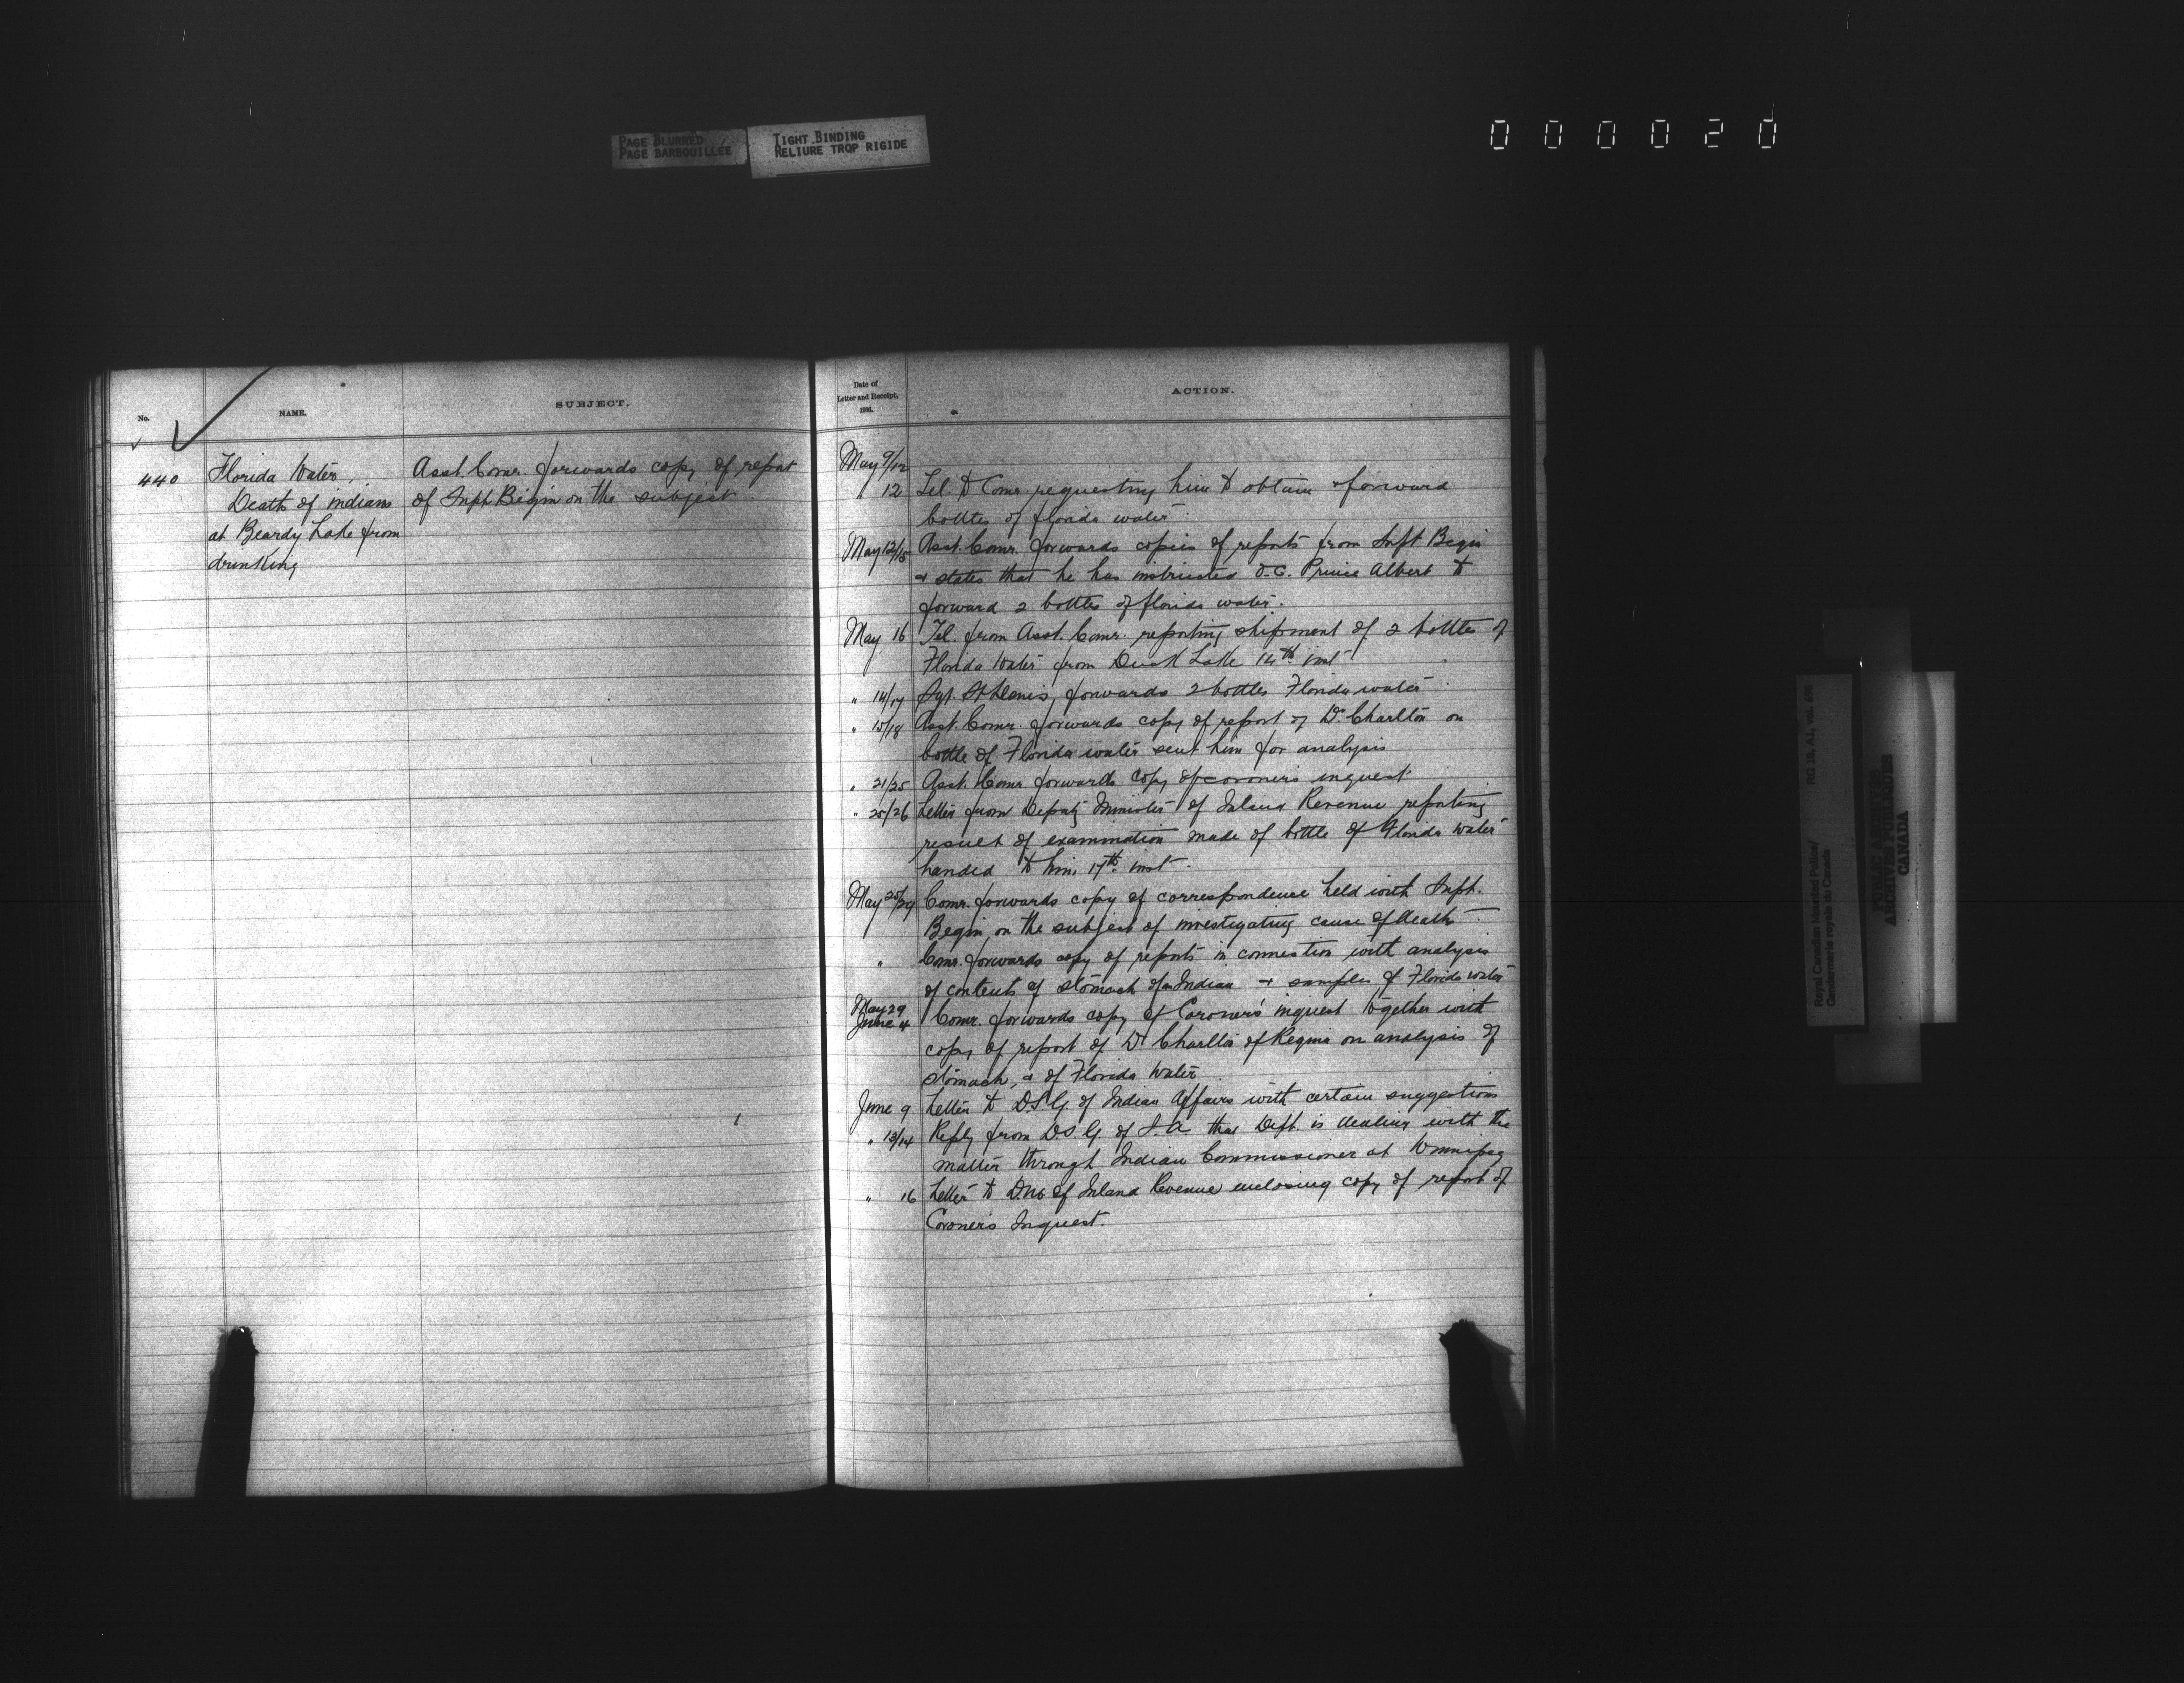 PAGE BLURRED
PAGE BARBOUILLÉE
TIGHT BINDING
RELIURE TROP RIGIDE
000020
No.
NAME.
SUBJECT.
440
Florida Water,
Death of indians
at Beardy Lake from
drinking
Asst. Comr. forwards copy of report
of Supt. Begin on the subject
Date of
Letter and Receipt,
ACTION.
May 9/12
" 12 Tel. to Comr. requesting him to obtain & forward
bottles of florida water
May 12/15 Asst. Comr. forwards copies of reports from Supt Begin
& states that he has instructed O.C. Prince Albert to
forward 2 bottles of florida water.
May 16 Tel. from Asst. Comr. reporting shipment of 2 bottles of
Florida Water from Duck Lake 14th inst
" 14/17 Sgt. St Denis, forwards 2 bottles Florida water
" 15/18 Asst. Comr. forwards copy of report of Dr. Charlton on
bottle of Florida water sent him for analysis
" 21/25 Asst. Comr forwards copy of coroners inquest
" 25/26 Letter from Deputy Minister of Inland Revenue reporting
result of examination made of bottle of Florida Water
handed to him 17th inst.
May 25/29 Comr. forwards copy of correspondence held with Supt.
Begin, on the subject of investigating cause of death
" Comr. forwards copy of reports in connection with analysis
of contents of stomach of an Indian & samples of Florida water
May 29
June 4 Comr. forwards copy of Coroner's inquest together with
copy of report of Dr Charlton of Regina on analysis of
stomach, & of Florida Water
June 9 Letter to D.S.G. of Indian Affairs with certain suggestions
" 13/14 Reply from D.S.G. of I.A. that Dept. is dealing with the
matter through Indian Commissioner at Winnipeg
" 16 Letter to DM of Inland Revenue enclosing copy of report of
Coroners Inquest.
Royal Canadian Mounted Police/
Gendarmerie royale du Canada
RG 18, A1, vol.
PUBLIC ARCHIVES
ARCHIVES PUBLIQUES
CANADA